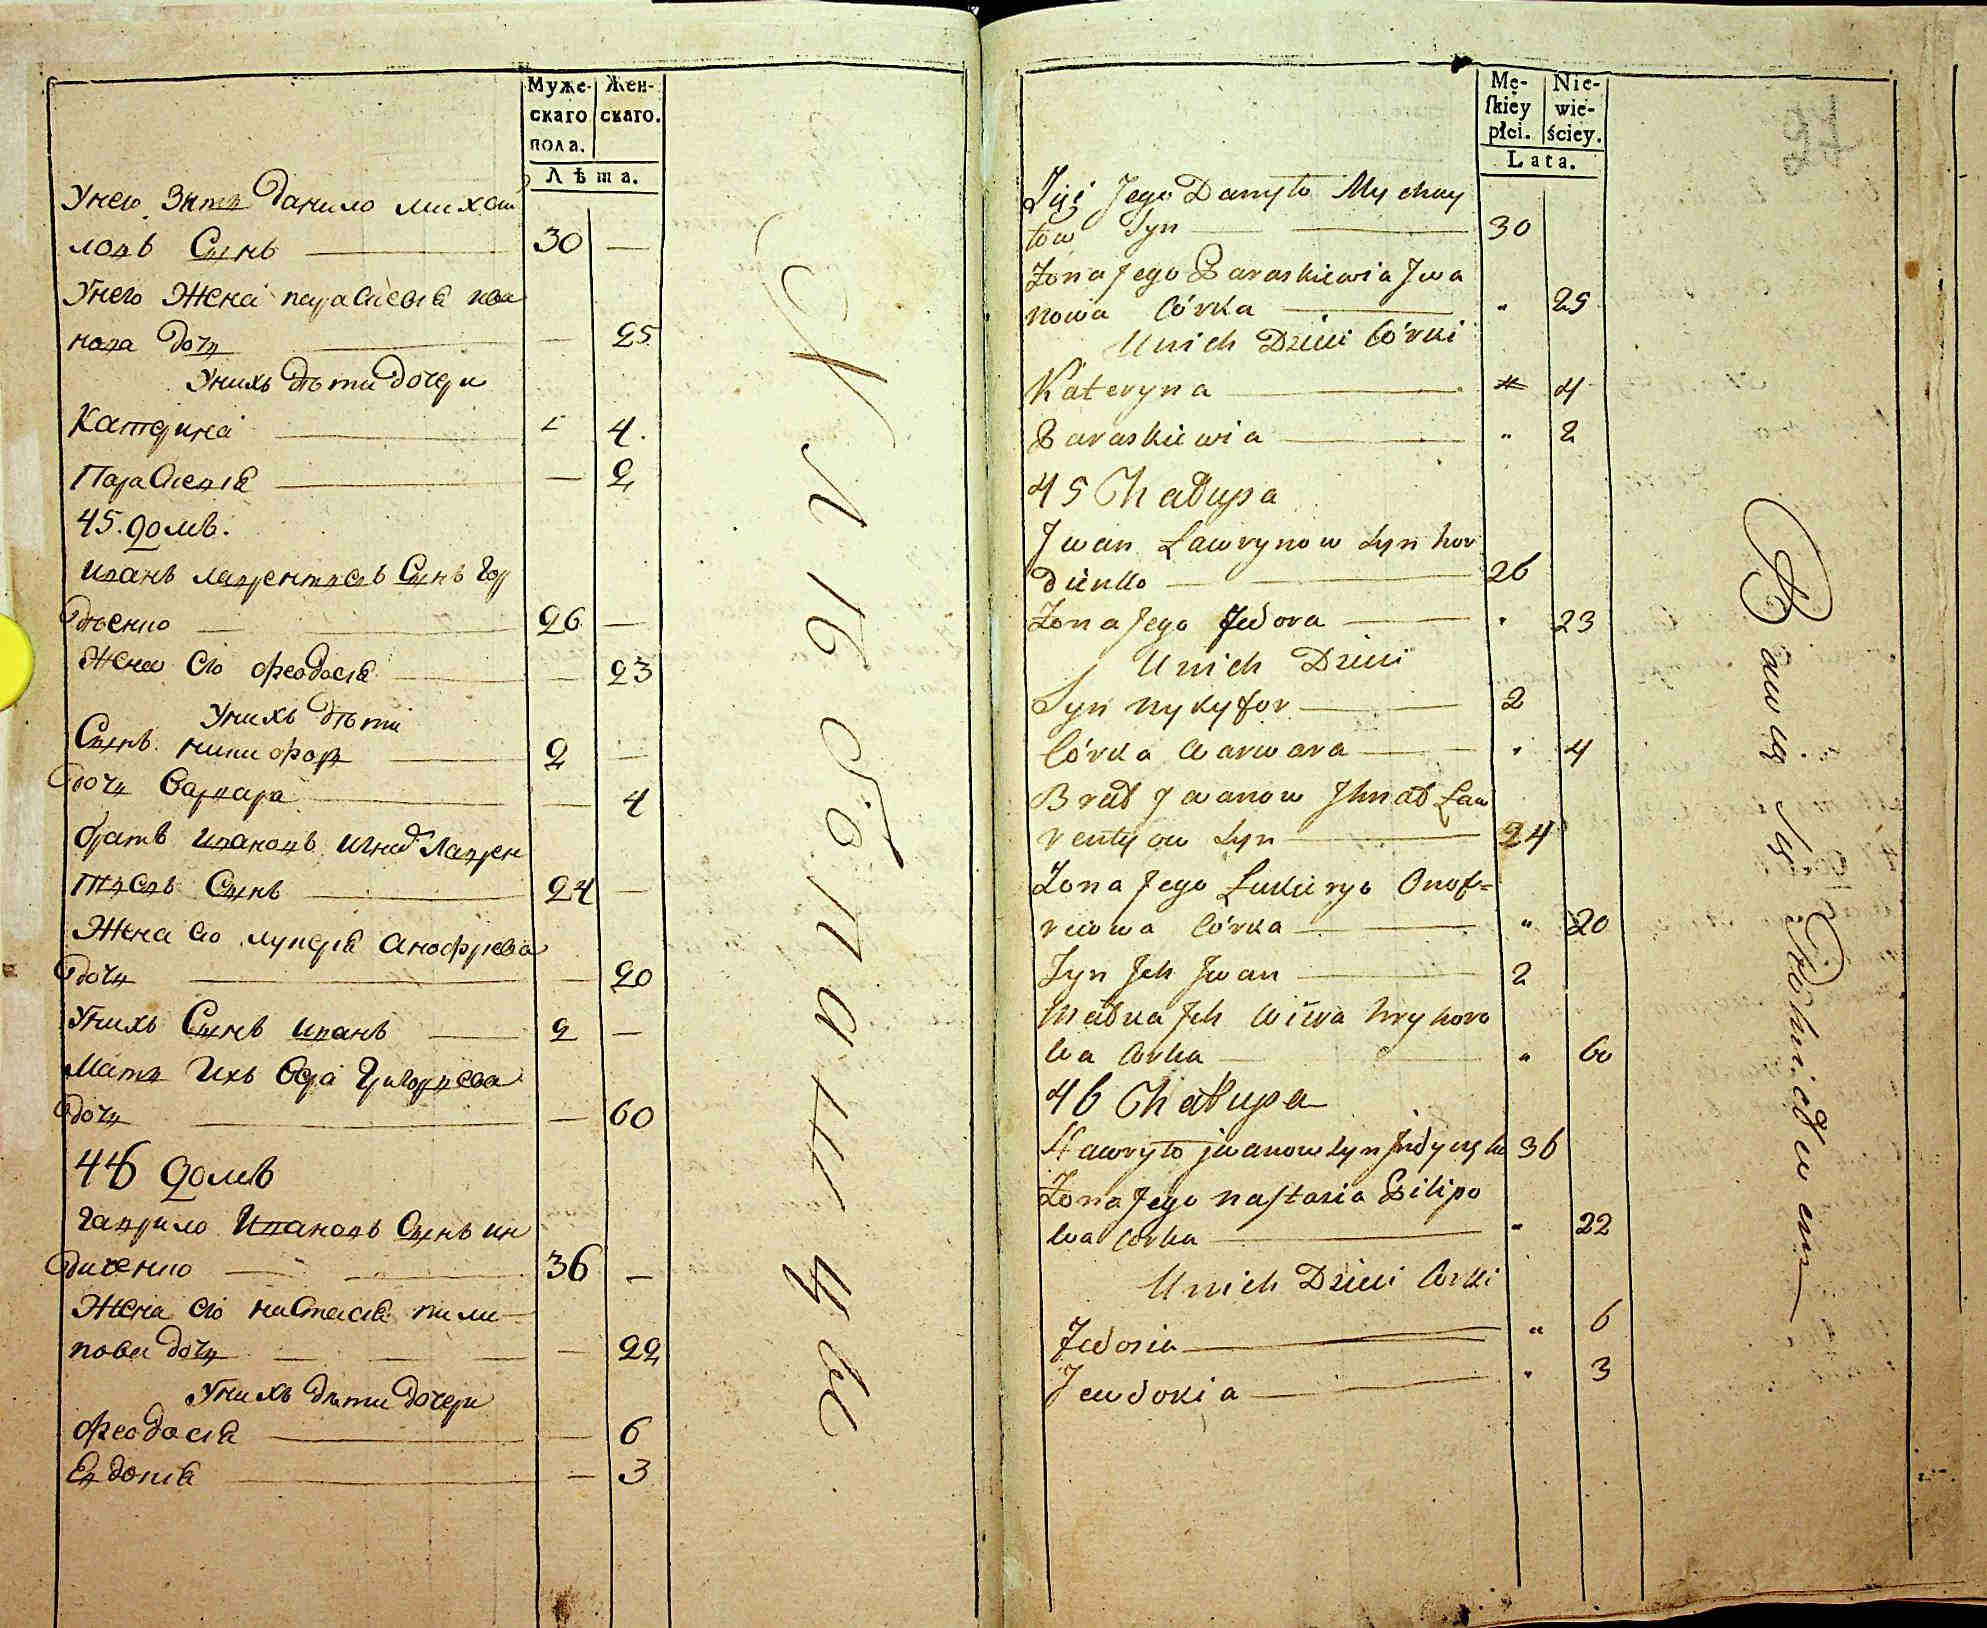 Муже-
скаго
пола.
Жен-
скаго.
Лѣта.
Унего Зять Данило михаи
ловъ Сынъ — 30 —
Унего Жена параскевiя ива
нова дочь — 25
Унихъ дѣти дочери
Катерина — 4
Параскевiя — 2
45. домъ.
иванъ лаврентiевъ Сынъ Гор
дѣенко 26 —
Жена его феодосiя — 23
Унихъ дѣти
Сынъ никифоръ 2 —
дочь варвара — 4
братъ ивановъ игнатъ Лаврен
тiевъ Сынъ 24 —
Жена его лукерiя анофрiева
дочь — 20
Унихъ Сынъ иванъ 2 —
Мать Ихъ вера Григорiева
дочь — 60
46 домъ
гаврило Ивановъ Сынъ ин
диченко 36 —
Жена его настасiя пили-
пова дочь — 22
Унихъ дѣти дочери
феодосiя — 6
Евдокiя — 3
Mę-
skiey
płci.
Nie-
wie-
ściey.
Lata.
Zięć Jego Danyło Mychay
łow Syn — 30
Żona Jego Paraskiewia Jwa
nowa Córka — " 25
Unich Dzieci Córki
Kateryna — " 4
Paraskiewia — " 2
45 Chałupa
Jwan Ławrynow Syn hor
dienko — 26
Żona Jego Fedora — " 23
Unich Dzieci
Syn nykyfor — 2
Córka warwara — " 4
Brat Jwanow Jhnat Ław
rentyow Syn — 24
Żona Jego Łukirya Onof=
riiowa Córka — " 20
Syn Jch Jwan — 2
Matka Jch wiera hryhoro
wa Corka — " 60
46 Chałupa
Hawryło jwanow Syn 36
Żona Jego nastasia Pilipo
wa Corka — " 22
Unich Dzieci Corki
Fedosia — " 6
Jewdokia — " 3